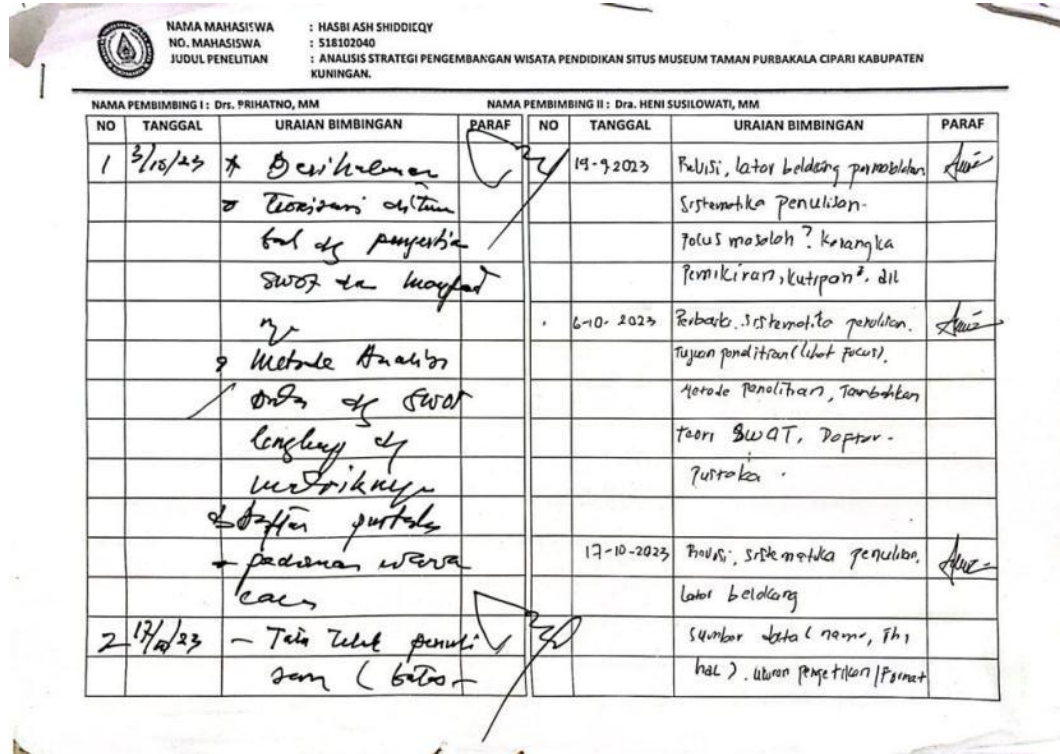 NAMA MAHASISWA : HASBI ASH SHIDDIEQY
NO. MAHASISWA : 518102040
JUDUL PENELITIAN : ANALISIS STRATEGI PENGEMBANGAN WISATA PENDIDIKAN SITUS MUSEUM TAMAN PURBAKALA CIPARI KABUPATEN
KUNINGAN.
NAMA PEMBIMBING I : Drs. PRIHATNO, MM
NO TANGGAL URAIAN BIMBINGAN PARAF
1 3/10/23 * Beri halaman
Teorisasi ditam
bah dg pengertia
SWOT dan manfaat
nya
Metode Analisis
Data dg SWOT
lengkap dg
matriknya
Daftar pustaka
- pedoman wawa
cara
2 17/10/23 - Tata penuli
san ( batas -
NAMA PEMBIMBING II : Dra. HENI SUSILOWATI, MM
NO TANGGAL URAIAN BIMBINGAN PARAF
19-9-2023 Revisi, latar belakang permasalahan
Sistematika penulisan.
Focus masalah ? Kerangka
Pemikiran, kutipan². dll
6-10-2023 Perbaiki sistematika penulisan.
Tujuan penelitian (lihat Focus).
Metode Penelitian, Tambahkan
teori SWOT, Daftar.
Pustaka.
17-10-2023 Revisi, sistematika penulisan.
latar belakang
Sumber data ( nama, Th,
hal ). ukuran pengetikan / Format